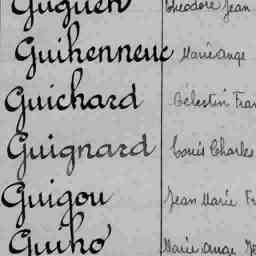 Guguen Théodore Jean
Guihenneuc Marie Ange
Guichard Célestin Fran
Guignard Louis Charles
Guigou Jean Marie Fr
Guiho Marie Ange